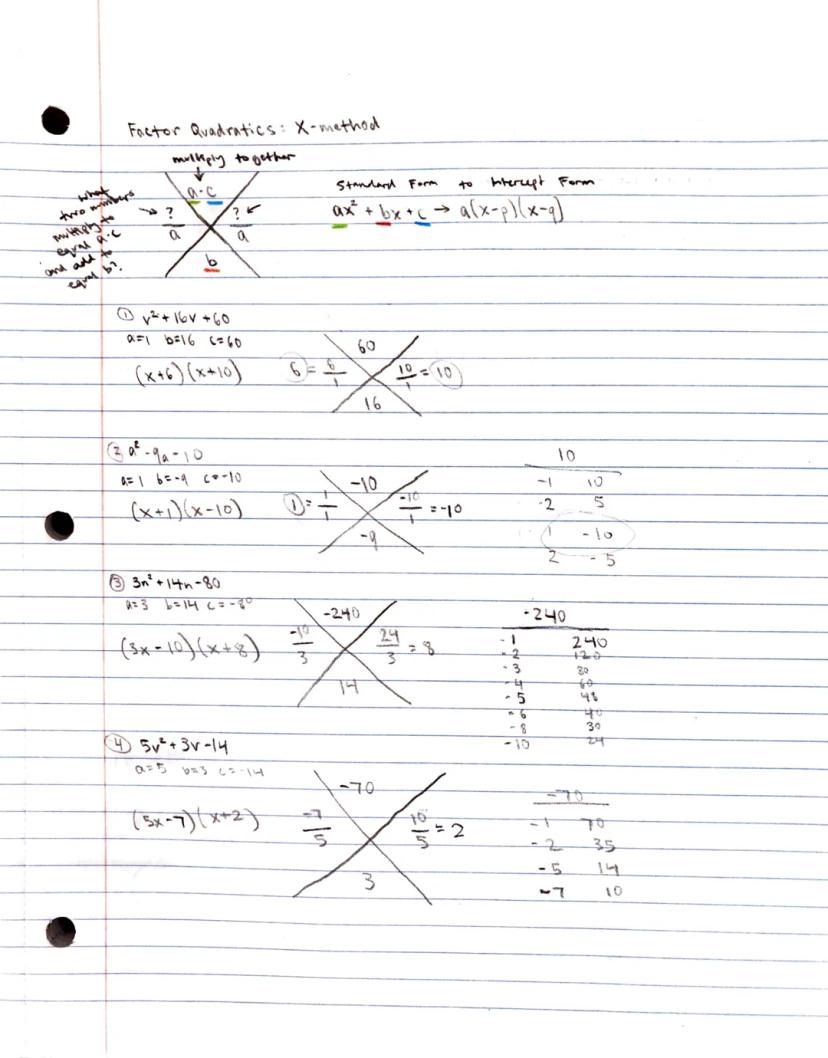 Factor Quadratics: X-method
multiply together
what
two numbers
multiply to
equal a·c
and add to
equal b?
a·c
? ?
a a
b
Standard Form to Intercept Form
ax² + bx + c → a(x-p)(x-q)
① v² + 16v + 60
a=1 b=16 c=60
(x+6)(x+10)
60
6 = 6/1 10/1 = 10
16
② a² - 9a - 10
a=1 b=-9 c=-10
(x+1)(x-10)
-10
1 = 1/1 -10/1 = -10
-9
10
-1 10
-2 5
1 -10
2 -5
③ 3n² + 14n - 80
a=3 b=14 c=-80
(3x-10)(x+8)
-240
-10/3 24/3 = 8
14
-240
-1 240
-2 120
-3 80
-4 60
-5 48
-6 40
-8 30
-10 24
④ 5v² + 3v - 14
a=5 b=3 c=-14
(5x-7)(x+2)
-70
-7/5 10/5 = 2
3
-70
-1 70
-2 35
-5 14
-7 10